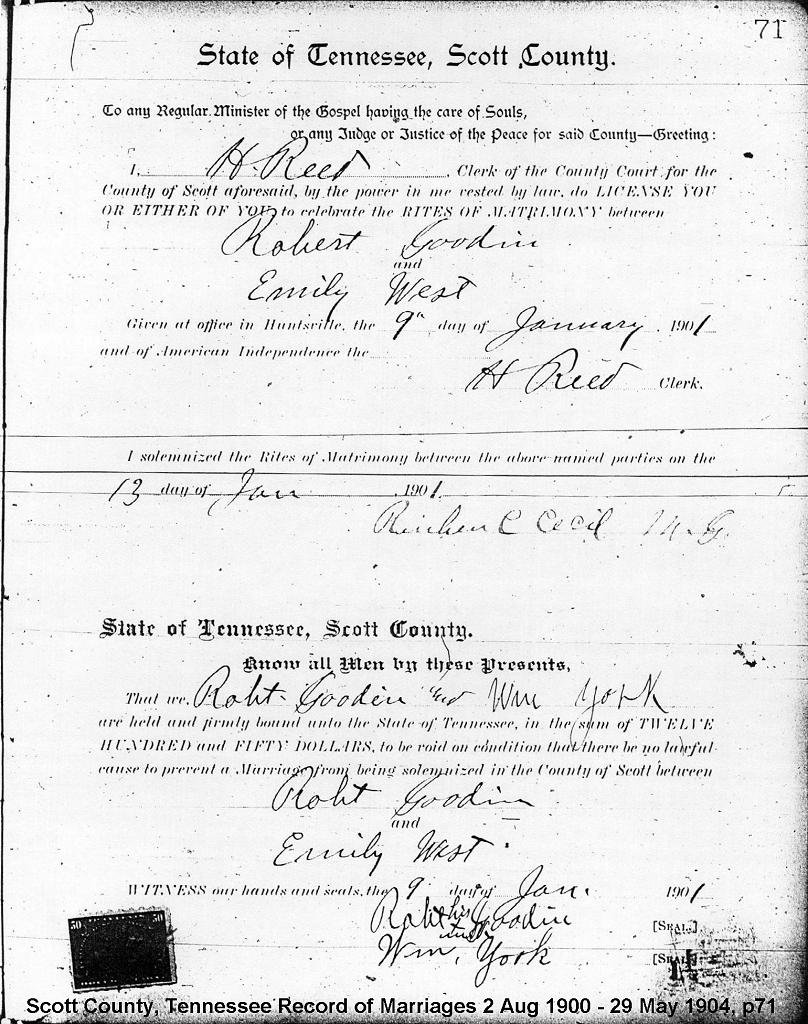 71
State of Tennessee, Scott County.
To any Regular Minister of the Gospel having the care of Souls,
or any Judge or Justice of the Peace for said County—Greeting:
I, H Reed, Clerk of the County Court for the
County of Scott aforesaid, by the power in me vested by law, do LICENSE YOU
OR EITHER OF YOU to celebrate the RITES OF MATRIMONY between
Robert Goodin
and
Emily West
Given at office in Huntsville, the 9" day of January, 1901
and of American Independence the
H Reed Clerk.
I solemnized the Rites of Matrimony between the above named parties on the
13 day of Jan 1901.
Reuben C Cecil M.G.
State of Tennessee, Scott County.
Know all Men by these Presents,
That we, Robt Goodin and Wm York
are held and firmly bound unto the State of Tennessee, in the sum of TWELVE
HUNDRED and FIFTY DOLLARS, to be void on condition that there be no lawful
cause to prevent a Marriage from being solemnized in the County of Scott between
Robt Goodin
and
Emily West
WITNESS our hands and seals, the 9 day of Jan. 1901
Robt his Goodin [SEAL]
Wm, York [SEAL]
50 50
Scott County, Tennessee Record of Marriages 2 Aug 1900 - 29 May 1904, p71